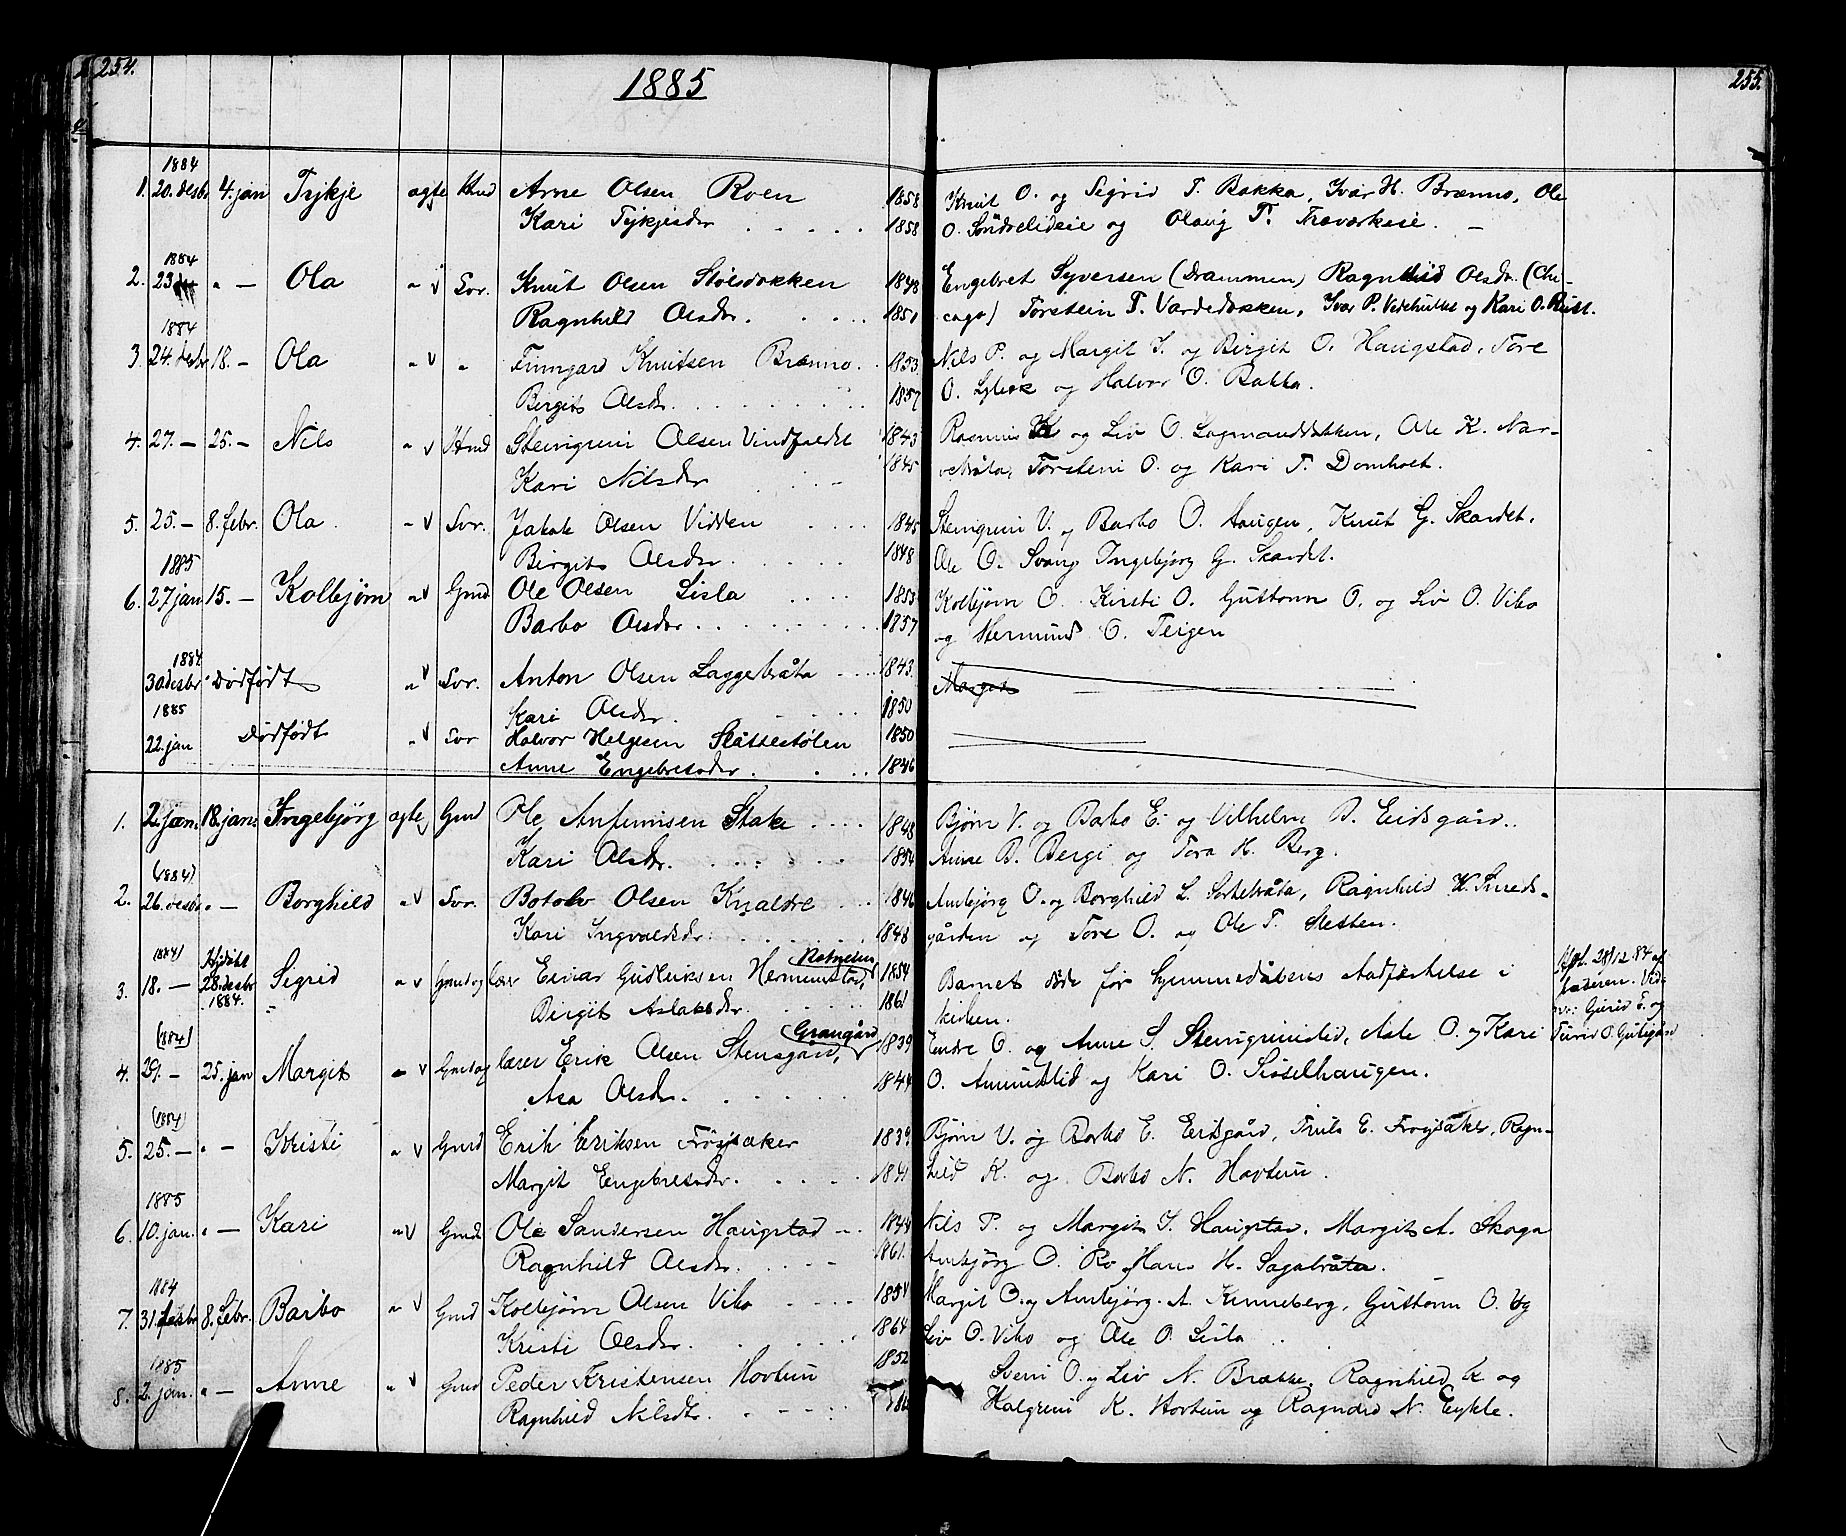 254.
1885
255.
1884
1. 20. desbr 4. jan Tykje ægte Hmd Arne Olsen Roen 1858 Knut O. og Sigrid T. Bakka, Ivar H. Brænno, Ole
Kari Tykjesdr 1858 O. Søndrelideie og Olaug T.
1884
2. 23 " — Ola " Svr. Knut Olsen Stølsdokken 1848 Engebret Syversen (Drammen) Ragnhild Olsdr. (Chi-
Ragnhild Olsdr. 1851 cago) Torstein T. Vardedokken, Ivar P. og Kari O. Rust.
1884
3. 24. desbr 18. — Ola " " Finngard Knutsen Brænno 1853 Nils P. og Margit S. og Birgit O. Haugstad, Tore
Birgit Olsdr. 1857 O. og Halvor O. Bakka.
4. 27. — 25. — Nils " Hmd Steingrim Olsen Vindfaldet 1843 Rasmus og Liv O. Ole K. Nar-
Kari Nilsdr 1845 vebråta, Torstein O. og Kari T. Domholt.
5. 25. — 8. febr. Ola. " Svr. Jakob Olsen Vidden 1845 Steingrim V. og Barbo O. Haugen, Knut G. Skardet.
Birgit Olsdr. 1848 Ole O. Ingebjørg G. Skardet.
1885
6. 27 jan 15. — Kolbjørn " Gmd Ole Olsen Lisla 1853 Kolbjørn O. Kirsti O. Guttorm O. og Liv O. Viko
Barbo Olsdr. 1857 og Hermund O. Teigen
1884
30 desbr Dødfødt " Svr. Anton Olsen Laggerbråta 1843. Margit
Kari Olsdr. 1850
1885
22. jan Dødfødt " Svr Halvor Helgesen Slåttestølen 1850
Anne Engebretsdr. 1846
1. 2. jan. 18. jan. Ingebjørg ægte Gmd Ole Anfinnsen Stake 1848 Bjørn V. og Barbo E. og Vilhelm B. Eidsgård.
Kari Olsdr. 1854 Anne B. Bergi og Tora H. Berg.
(1884)
2. 26. desbr " — Borghild " Svr. Botolv Olsen Knaldre 1846 Ambjørg O. og Borghild L. Ragnhild K. Smeds-
Kari Ingvaldsdr. 1848 gården og Tore O. og Ole T. Sletten.
1884)
3. 18. — 28. desbr 1884. Sigrid " Gmd og lærer Einar Gudleiksen Hermunstad, 1854 Barnet døde før hjemmedåbens stadfæstelse i
Birgit Aslaksdr. 1861 kirken.
28/12 84 af
faderen. Vid-
ner: Guri T. og
Turid O. Gutigård
(1884)
4. 29. — 25. jan Margit " Gmd og lærer Erik Olsen Stensgård, Grangård 1839 Endre O. og Anne S. Steingrimslid, Asle O. og Kari
Asa Olsdr. 1844 O. Amundlid og Kari O. Sisselhaugen.
(1884)
5. 25. — " — Kristi " Gmd Erik Eriksen Frøysaker 1839. Bjørn V. og Barbo E. Eidsgård, Truls E. Frøysaker, Ragn-
Margit Engebretsdr. 1841 hild K. og Barbo N. Hovtun.
1885
6. 10. jan. " — Kari " Gmd. Ole Sandersen Haugstad 1844 Nils P. og Margit S. Haugstad, Margit A. Skoga
Ragnhild Olsdr. 1861. Ambjørg O. Ro Hans H. Sagabråta.
1884
7. 31. desbr 8. febr. Barbo " Gmd Kolbjørn Olsen Viko 1854 Margit O. og Ambjørg A. Kinneberg, Guttorm O. og
Kristi Olsdr. 1864 Liv O. Viko og Ole O. Lisla
1885
8. 2. jan. " — Anne " Gmd Peder Kristensen Hovtun 1852 Svein O. og Liv N. Brække, Ragnhild K og
Ragnhild Nilsdtr. Halgrim K. Hovtun og Ragndid N. Eykle.